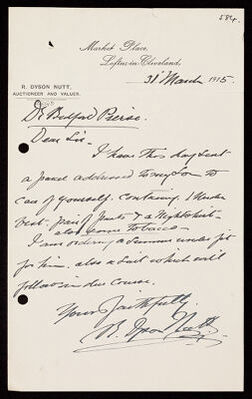 584.
Market Place,
Loftus in Cleveland,
31st March 1915.
R. DYSON NUTT,
AUCTIONEER AND VALUER.
Dr Bedford Pierce.
Dear Sir -
I have this day sent
a parcel addressed to my Son to
care of yourself. containing, 1 Under
Vest - pair of Pants & a Nightshirt -
also some Tobacco -
I am ordering a Summer under
for him. also a Suit which will
follow in due course.
Yours faithfully.
R. Dyson Nutt